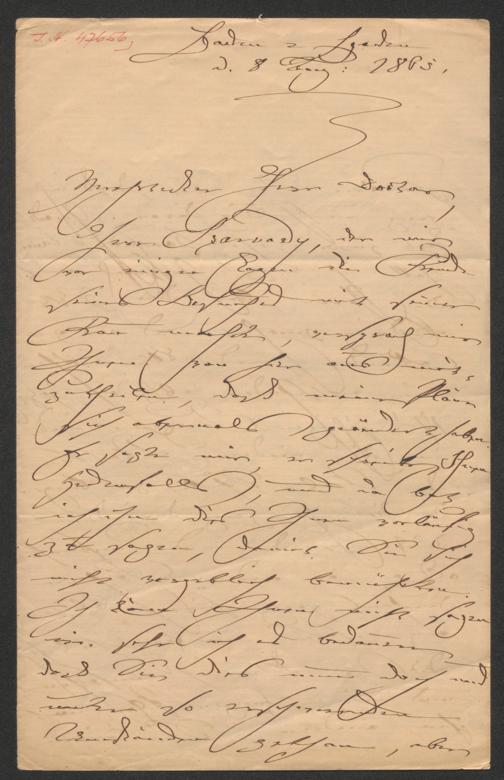 I. N. 47656,
Baden-Baden
d. 8 Aug: 1863.
Verehrter Herr Doctor,
Herr Szarvady, der mir
vor einigen Tagen die Freude
seines Besuches mit seiner
Frau machte, versprach mir
Ihnen von hier aus mit-
zutheilen, daß meine Pläne
sich abermals geändert haben.
Er sagte mir, er schriebe Ihnen
jedenfalls, und da bat
ich ihn dies Ihnen vorläufig
zu sagen, damit Sie sich
nicht vergeblich bemühten.
Ich kann Ihnen nicht sagen
wie sehr ich es bedauere
daß Sie dies nun doch und
unter so
Umständen gethan, aber